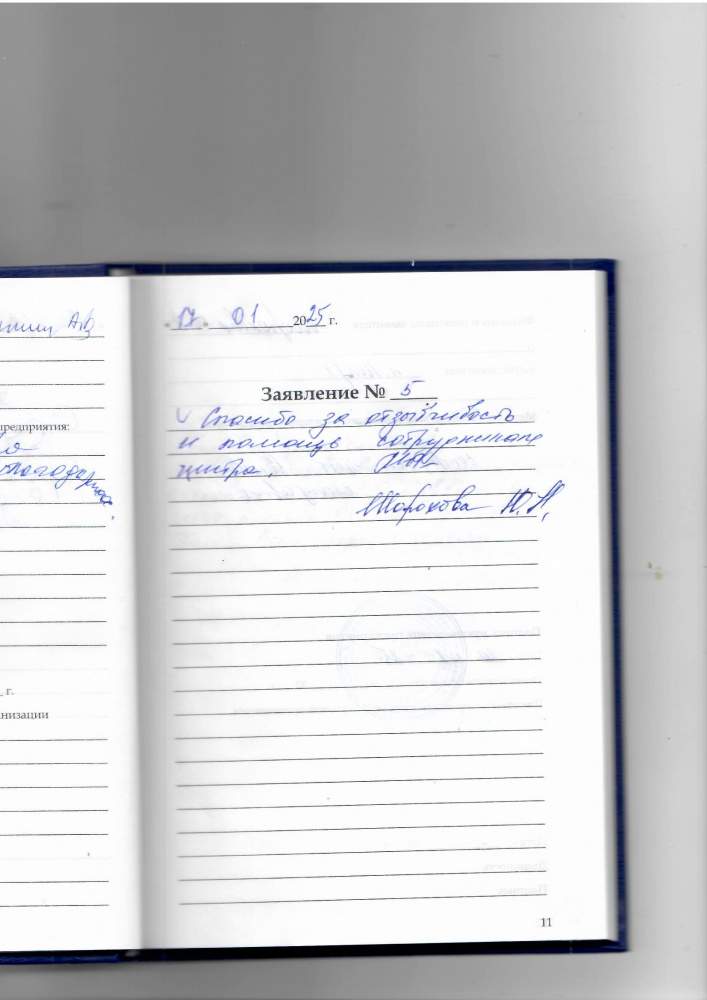 А.В
предприятия:
г.
анизации
17 01 2025 г.
Заявление № 5
Спасибо за отзывчивость
и помощь сотрудникам
центра.
Шорохова Н.Н.
11